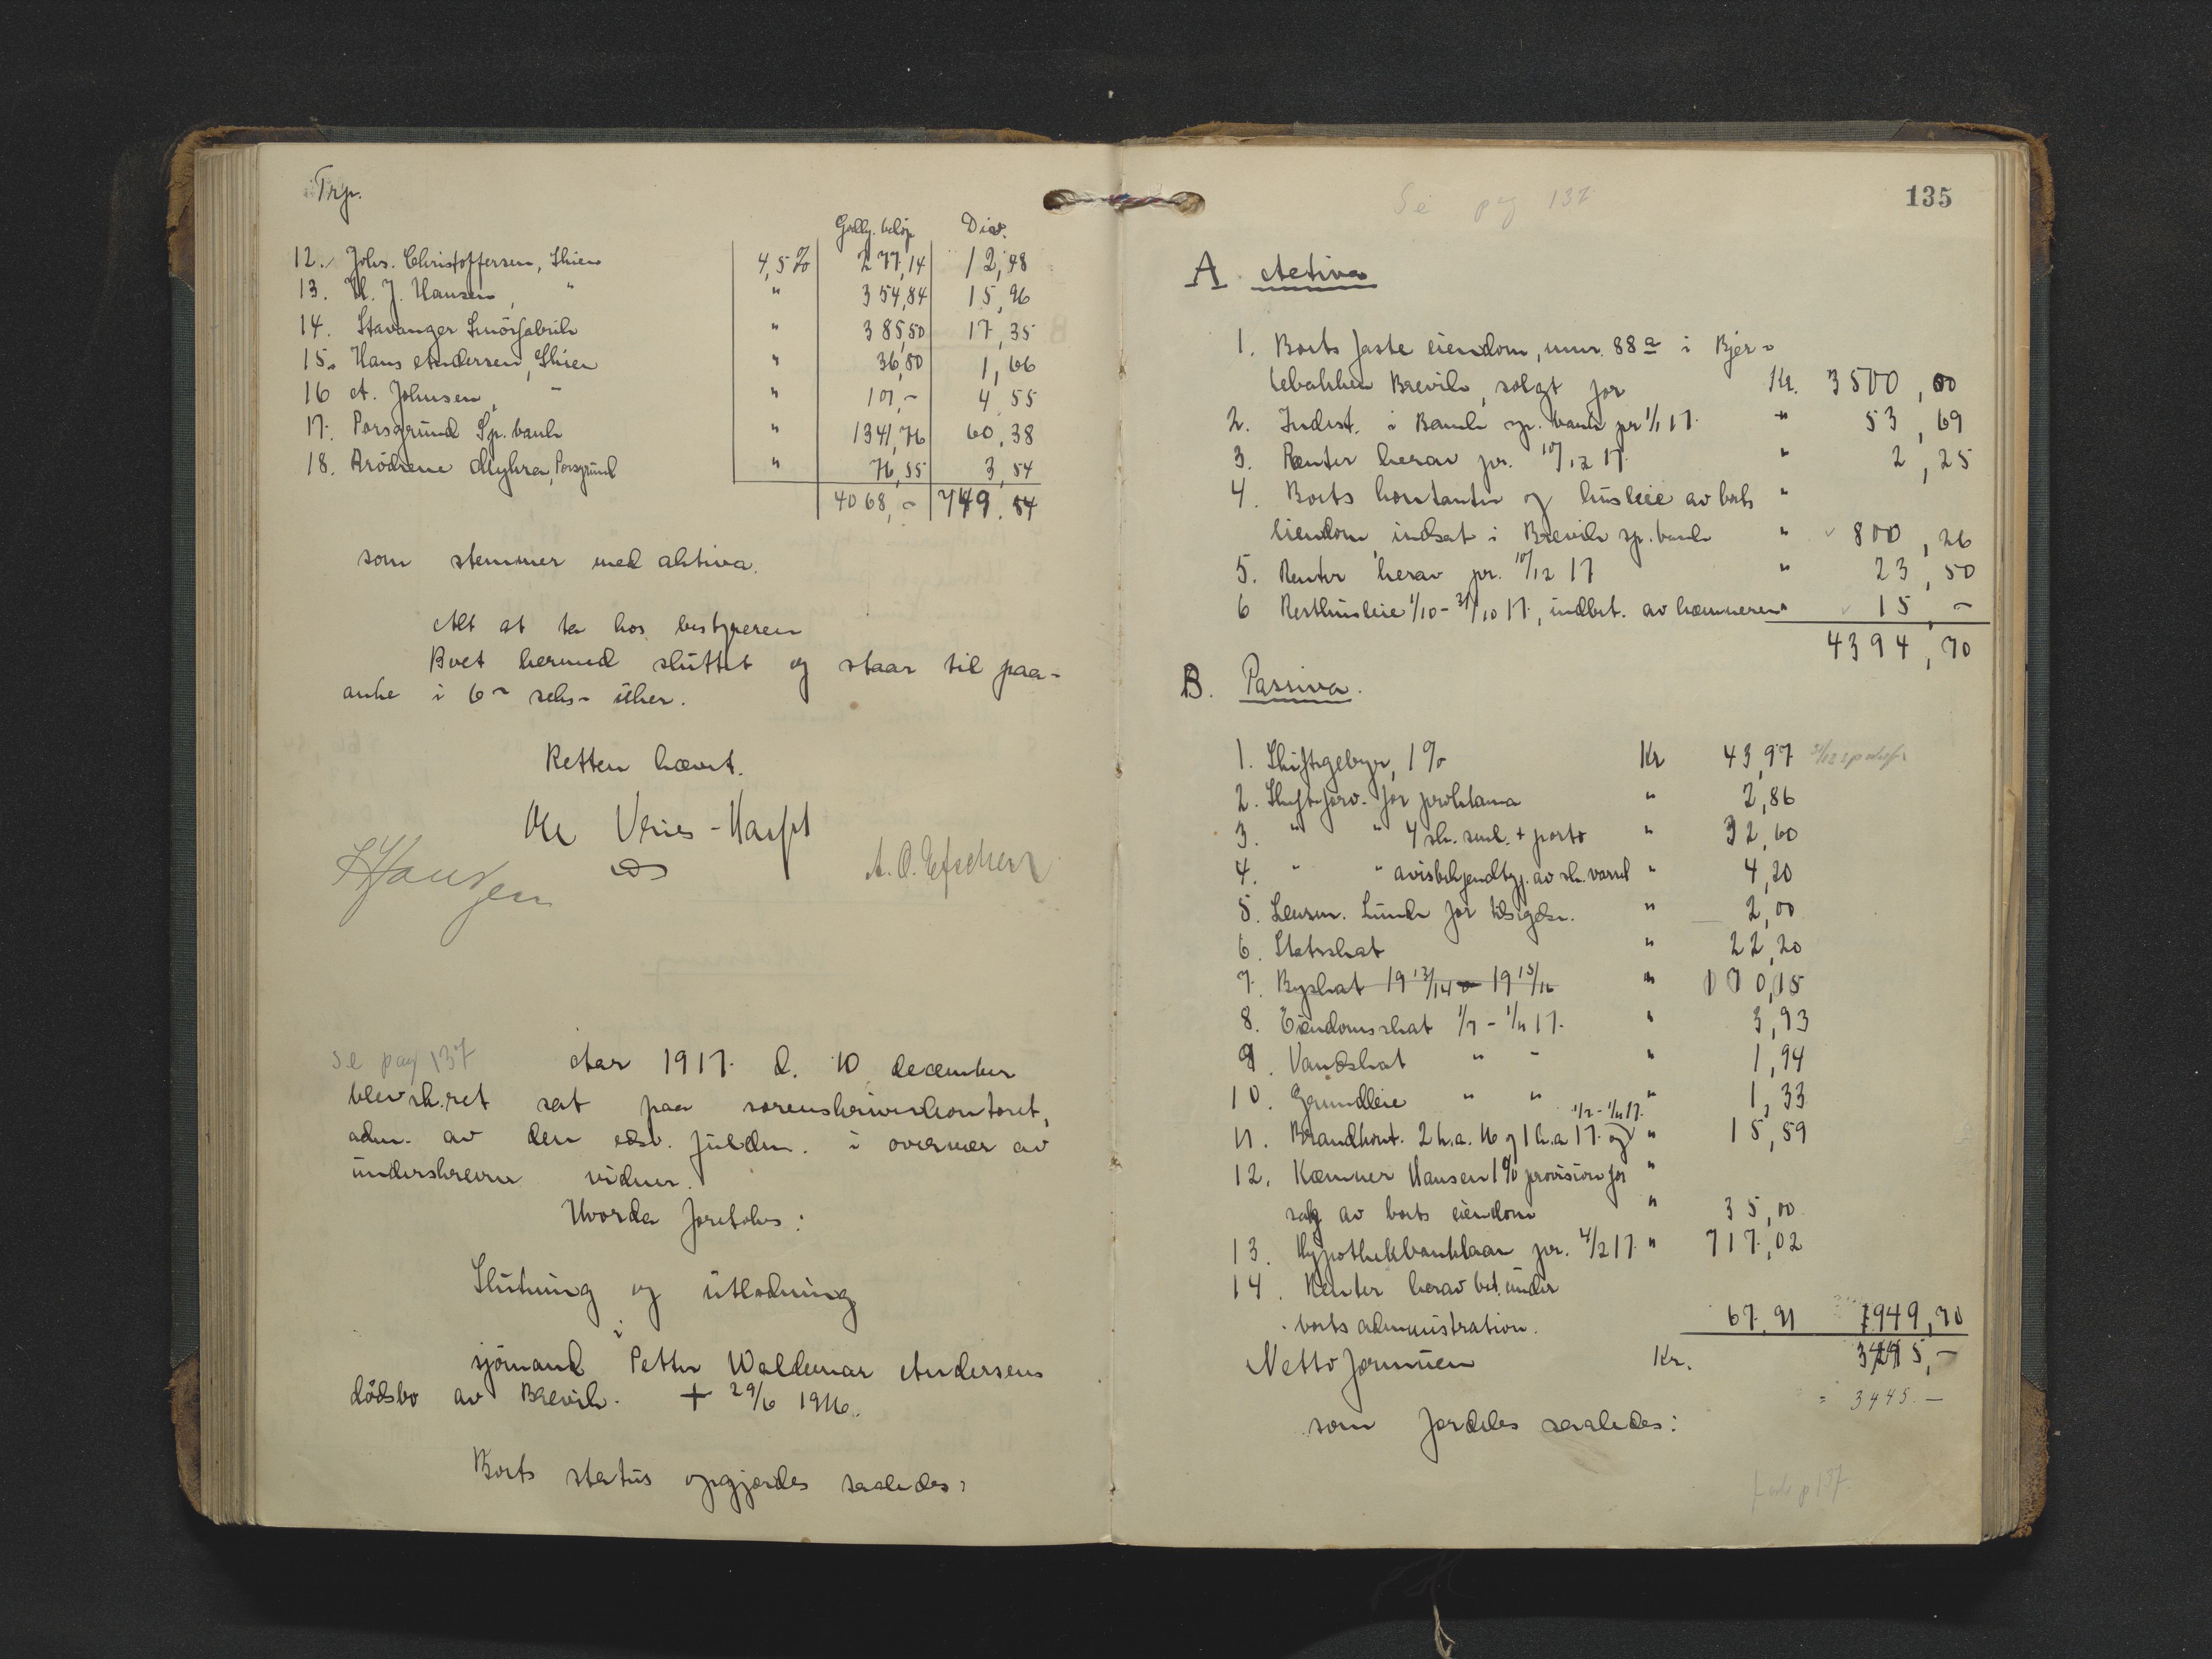 Trp.
Godkj. beløp Div.
12. Johs. Christoffersen, Skien 4,5 % 277,14 12,48
13. H. J. Hansen, " " 354,84 15,96
14. Stavanger Smörfabrik " 385,50 17,35
15. Hans Andersen, Skien " 36,80 1,66
16 A. Johnsen, - " 101,- 4,55
17. Porsgrund Sp. bank " 1341,76 60,38
18. Brödrene Myhra, Porsgrund " 76,55 3,54
4068,- 749.54
som stemmer med aktiva.
Alt at ta hos bestyreren
Boet hermed sluttet og staar til paa-
anke i 6 - seks - uker.
Retten hævet.
Ole Vries-Harfst
A. O. Efsken
Hansen
se pag 137
Aar 1917 d. 10 december
blev sk.ret sat paa sorenskriverkontoret,
adm. av den edsv. fuldm. i overvær av
underskrevne vidner.
Hvorda foretokes:
Slutning og utlodning
i
sjömand Petter Waldemar Andersens
dödsbo av Brevik. + 29/6 1916.
Boets status opgjordes saaledes:
Se pag 137
135
A. Activa
1. Boets faste eiendom, mnr. 88 a i Bjer-
kebakken Brevik, solgt for Kr. 3500,00
2. Indest. i Bamle sp. bank pr 1/1 17. " 53,69
3. Renter herav pr. 10/12 17 " 2,25
4. Boets kontanter og husleie av boets "
eiendom, indsat i Brevik sp. bank " 800,26
5. Renter herav pr. 10/12 17 " 23,50
6 Resthusleie 1/10 - 31/10 17, indbet. av kæmneren " 15,-
4394,70
B. Passiva.
1. Skiftegebyr, 1 % Kr 43,97
2. Skiftesforv. for proklama " 2,86
3. " " 4 sk. saml. + porto " 32,60
4. " " avisbekjendtgj. av sk. varsel " 4,20
5. Lensm. Lunde for tilsigelse. " 2,00
6. Statsskat " 22,20
7. Byskat 19 13/14 - 19 15/16 " 170,15
8. Eiendomsskat 1/7 - 1/11 17. " 3,93
9. Vandskat " - " 1,94
10. Grundleie " " " 1,33
1/7 - 1/11 17.
11. Brandkont. 2 h.a. 16 og 1 h.a 17. og " 15,59
12. Kæmner Hansen 1% provision for "
salg av boets eiendom " 35,00
13. Hypothekbanklaan pr. 4/2 17. " 717,02
14. Renter herav bet. under
boets administration. 67,91 949,70
Netto formuen Kr. 3445,-
= 3445.-
som fordeles saaledes:
forts p 137.